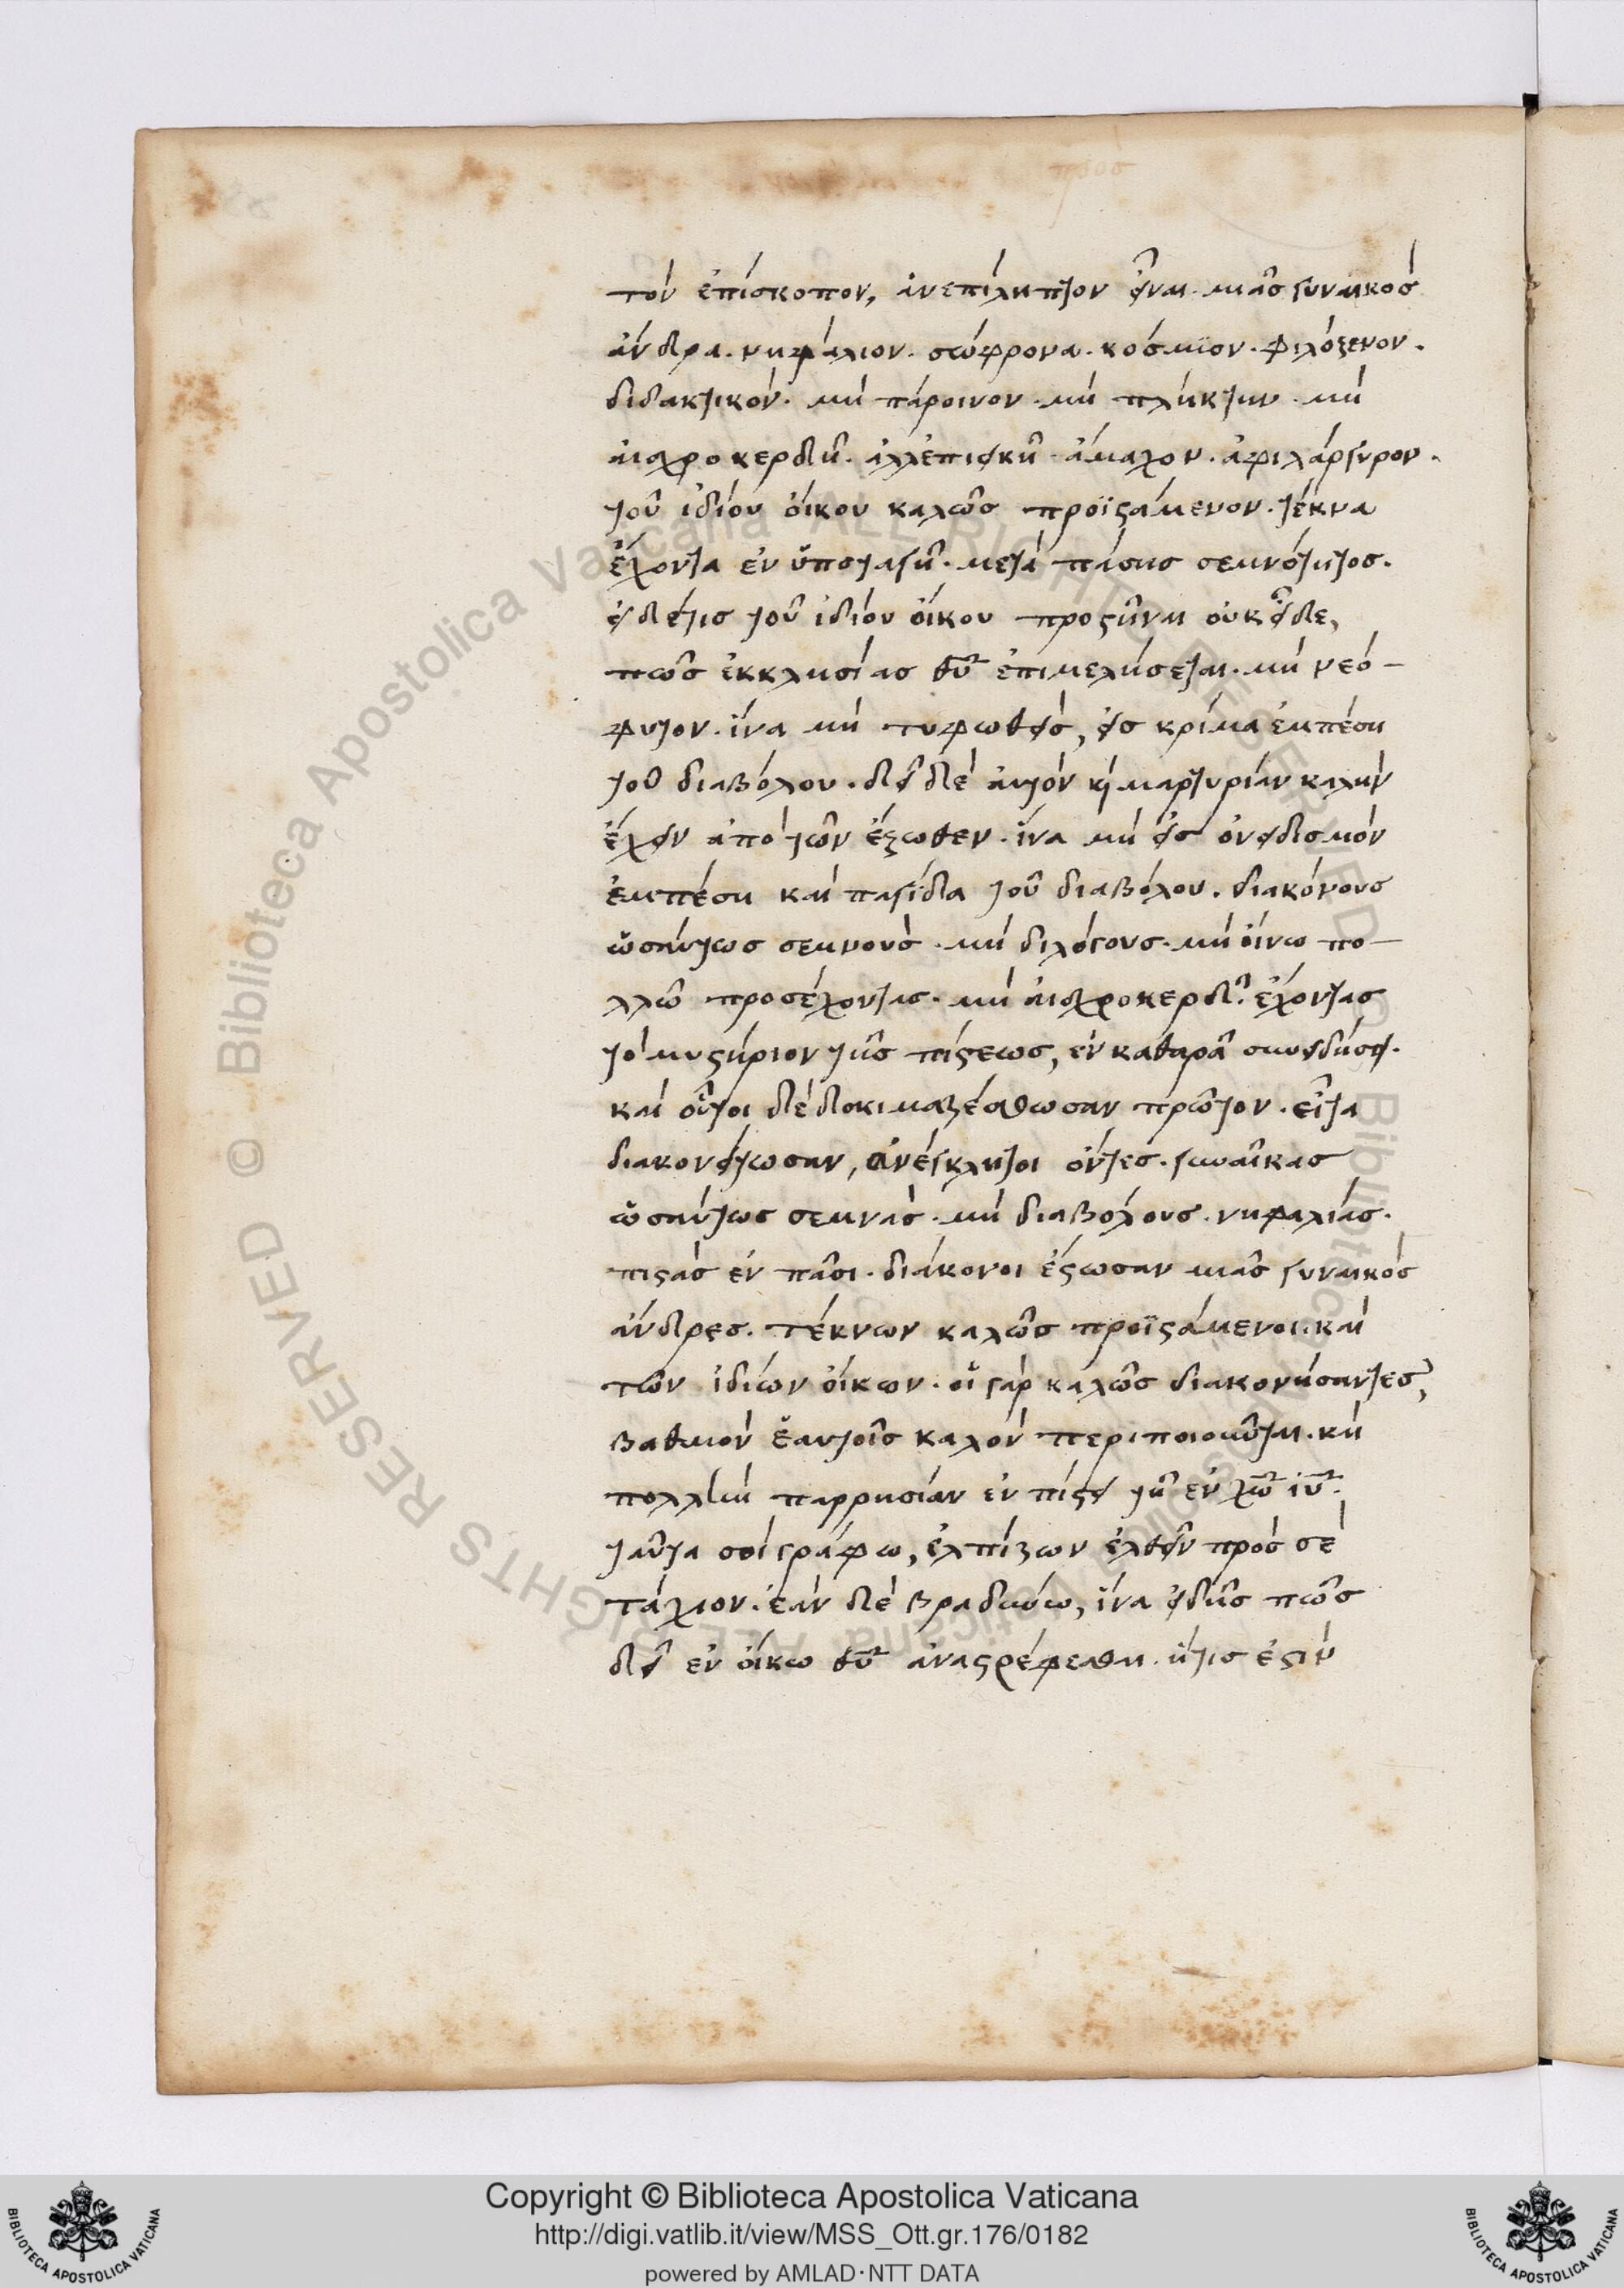 τὸν ἐπίσκοπον, ἀνεπίληπτον εἶναι. μιᾶς γυναικὸς
ἄνδρα. νηφάλιον. σώφρονα. κόσμϊον. φιλόξενον.
διδακτικόν. μὴ πάροινον. μὴ πλήκτην. μὴ
αἰσχροκερδῆ. ἀλλἐπιεικῆ. ἄμαχον. ἀφιλάργυρον.
τοῦ ἰδίου οἴκου καλῶς προϊστάμενον. τέκνα
ἔχοντα ἐν ὑποταγῆ. μετὰ πάσης σεμνότητος.
εἰ δέ τις τοῦ ἰδίου οἴκου προστῆναι οὐκ οἶδε,
πῶς ἐκκλησίας θυ ἐπιμελήσεται. μὴ νεό-
φυτον. ἵνα μὴ τυφωθεὶς, εἰς κρίμα ἐμπέση
τοῦ διαβόλου. δεῖ δὲ αὐτὸν κ̀ μαρτυρίαν καλὴν
ἔχειν ἀπὸ τῶν ἔξωθεν. ἵνα μὴ εἰς ὀνειδισμὸν
ἐμπέση καὶ παγίδα τοῦ διαβόλου. διακόνους
ὡσαύτως σεμνοὺς. μὴ διλόγους. μὴ οἴνω πο-
λλῶ προσέχοντας. μὴ αἰσχροκερδεῖς. ἔχοντας
τὸ μυστήριον τῆς πίστεως, ἐν καθαρᾶ συνειδήσει.
καὶ οὗτοι δὲ δοκιμαζέσθωσαν πρῶτον. εἶτα
διακονείτωσαν, ἀνέγκλητοι ὄντες. γυναῖκας
ὡσαύτως σεμνὰς. μὴ διαβόλους. νηφαλίας.
πιστὰς ἐν πᾶσι. διάκονοι ἔστωσαν μιᾶς γυναικὸς
ἄνδρες. τέκνων καλῶς προϊστάμενοι. καὶ
τῶν ἰδίων οἴκων. οἱ γὰρ καλῶς διακονήσαντες,
βαθμὸν ἑαυτοῖς καλὸν περιποιοῦνται. κὴ
πολλὴν παρρησίαν ἐν πίστει τῆ ἐν χω ιυ.
ταῦτα σοὶ γράφω, ἐλπίζων ἐλθεῖν πρὸς σὲ
τάχιον. ἐὰν δὲ βραδύνω, ἵνα εἰδῆς πῶς
δεῖ ἐν οἴκω θυ ἀναστρέφεσθαι. ἥτις ἐστὶν
Copyright © Biblioteca Apostolica Vaticana
http://digi.vatlib.it/view/MSS_Ott.gr.176/0182
powered by AMLAD·NTT DATA